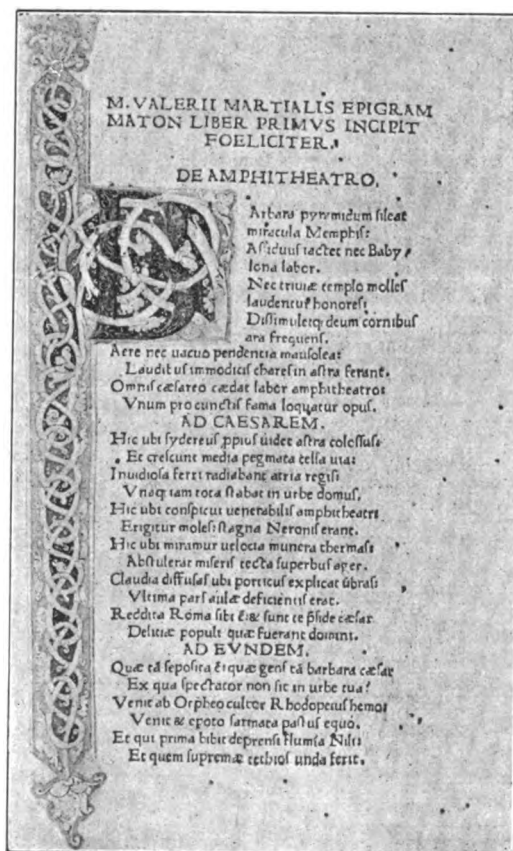 M. VALERII MARTIALIS EPIGRAM
MATON LIBER PRIMVS INCIPIT
FOELICITER.
DE AMPHITHEATRO.
BArbara pyramidum sileat
miracula Memphis:
Assiduus iactet nec Baby
lona labor.
Nec triuiæ templo molles
laudentur honores:
Dissimuletq; deum cornibus
ara frequens.
Aere nec uacuo pendentia mausolea:
Laudibus immodicis chares in astra ferant.
Omnis cæsareo cædat labor amphitheatro:
Vnum pro cunctis fama loquatur opus.
AD CAESAREM.
Hic ubi sydereus ppius uidet astra colossus:
Et crescunt media pegmata celsa uia:
Inuidiosa feri radiabant atria regis:
Vnaq; iam tota stabat in urbe domus.
Hic ubi conspicui uenerabilis amphitheatri
Erigitur moles: stagna Neronis erant.
Hic ubi miramur uelocia munera thermas:
Abstulerat miseris tecta superbus ager.
Claudia diffusas ubi porticus explicat ūbras:
Vltima pars aulæ deficientis erat.
Reddita Roma sibi ē: & sunt te pside cæsar
Deliciæ populi quæ fuerant domini.
AD EVNDEM.
Quæ tā seposita ē: quæ gens tā barbara cæsar
Ex qua spectator non sit in urbe tua?
Venit ab Orpheo cultor Rhodopeius hemo:
Venit & epoto sarmata pastus equo.
Et qui prima bibit deprensi flumīa Nili:
Et quem supremæ tethios unda ferit.